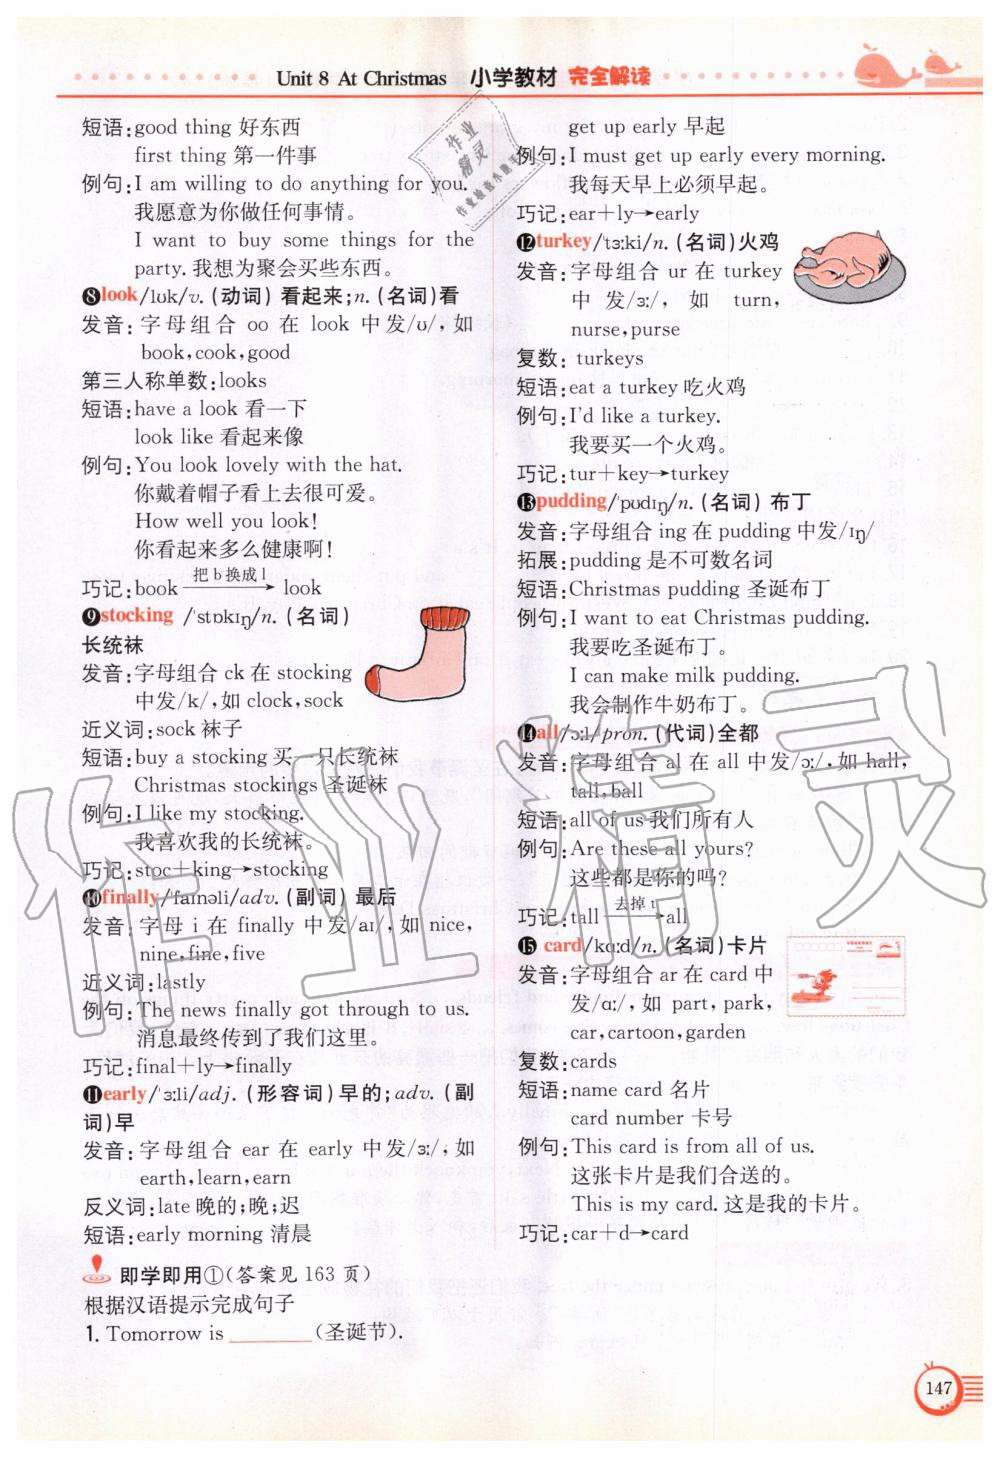 Unit 8 At Christmas 小学教材 完全解读
短语:good thing 好东西
first thing 第一件事
例句:I am willing to do anything for you.
我愿意为你做任何事情。
I want to buy some things for the
party. 我想为聚会买些东西。
❽look/lʊk/v. (动词) 看起来;n. (名词)看
发音:字母组合 oo 在 look 中发/ʊ/,如
book,cook,good
第三人称单数:looks
短语:have a look 看一下
look like 看起来像
例句:You look lovely with the hat.
你戴着帽子看上去很可爱。
How well you look!
你看起来多么健康啊!
巧记:book 把 b 换成 l → look
❾stocking /ˈstɒkɪŋ/n. (名词)
长统袜
发音:字母组合 ck 在 stocking
中发/k/,如 clock,sock
近义词:sock 袜子
短语:buy a stocking 买一只长统袜
Christmas stockings 圣诞袜
例句:I like my stocking.
我喜欢我的长统袜。
巧记:stoc+king→stocking
❿finally/ˈfaɪnəli/adv. (副词) 最后
发音:字母 i 在 finally 中发/aɪ/,如 nice,
nine,fine,five
近义词:lastly
例句:The news finally got through to us.
消息最终传到了我们这里。
巧记:final+ly→finally
⓫early/ˈɜːli/adj. (形容词)早的;adv. (副
词)早
发音:字母组合 ear 在 early 中发/ɜː/,如
earth,learn,earn
反义词:late 晚的;晚;迟
短语:early morning 清晨
即学即用①(答案见 163 页)
根据汉语提示完成句子
1. Tomorrow is ________ (圣诞节).
get up early 早起
例句:I must get up early every morning.
我每天早上必须早起。
巧记:ear+ly→early
⓬turkey/ˈtɜːki/n. (名词)火鸡
发音:字母组合 ur 在 turkey
中发/ɜː/,如 turn,
nurse,purse
复数: turkeys
短语:eat a turkey吃火鸡
例句:I'd like a turkey.
我要买一个火鸡。
巧记:tur+key→turkey
⓭pudding/ˈpʊdɪŋ/n. (名词) 布丁
发音:字母组合 ing 在 pudding 中发/ɪŋ/
拓展:pudding 是不可数名词
短语:Christmas pudding 圣诞布丁
例句:I want to eat Christmas pudding.
我要吃圣诞布丁。
I can make milk pudding.
我会制作牛奶布丁。
⓮all/ɔːl/pron. (代词)全都
发音:字母组合 al 在 all 中发/ɔː/,如 hall,
tall,ball
短语:all of us我们所有人
例句:Are these all yours?
这些都是你的吗?
巧记:tall 去掉 t → all
⓯ card/kɑːd/n. (名词)卡片
发音:字母组合 ar 在 card 中
发/ɑː/,如 part,park,
car,cartoon,garden
复数:cards
短语:name card 名片
card number 卡号
例句:This card is from all of us.
这张卡片是我们合送的。
This is my card. 这是我的卡片。
巧记:car+d→card
147
作业精灵
作业精灵